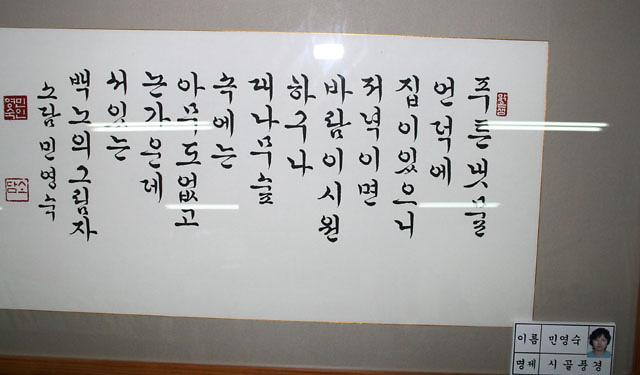 푸른냇물
언덕에
집이있으니
저녁이면
바람이시원
하구나
대나무숲
속에는
아무도없고
논가운데
서있는
백노의그림자
소담민영숙
민인영숙
소담
이름 민영숙
명제 시골풍경